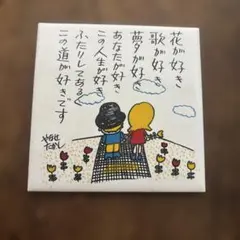 花が好き
歌が好き
夢が好き
あなたが好き
この人生が好き
ふたりしてあるく
この道が好きです
やなせたかし